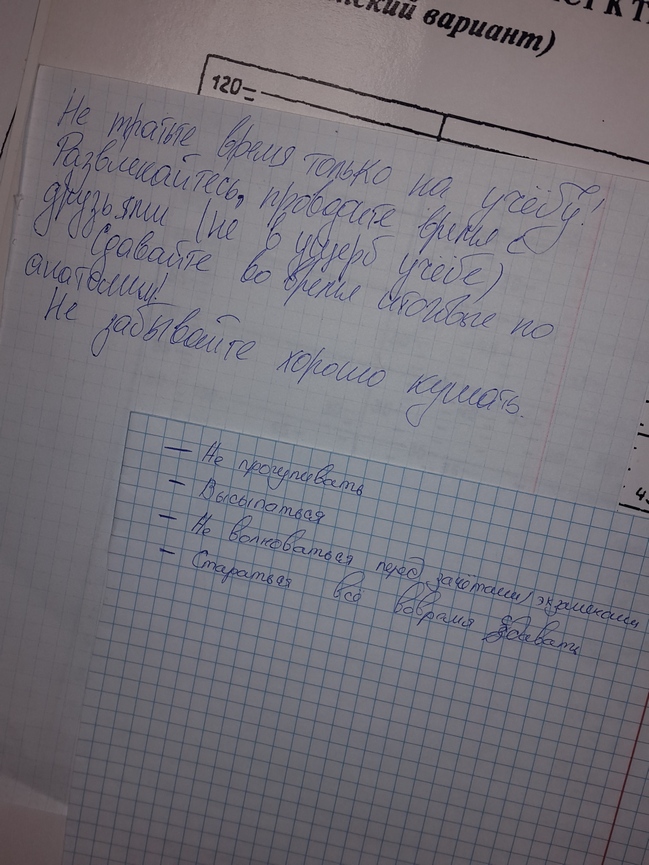 кий вариант)
120
Не тратьте время только на учёбу!
Развлекайтесь, проводите время с
друзьями (не в ущерб учёбе)
Сдавайте во время итоговые по
анатомии!
Не забывайте хорошо кушать.
— Не прогуливать
— Высыпаться
— Не волноваться перед зачётами/экзаменами
— Стараться всё вовремя сдавать